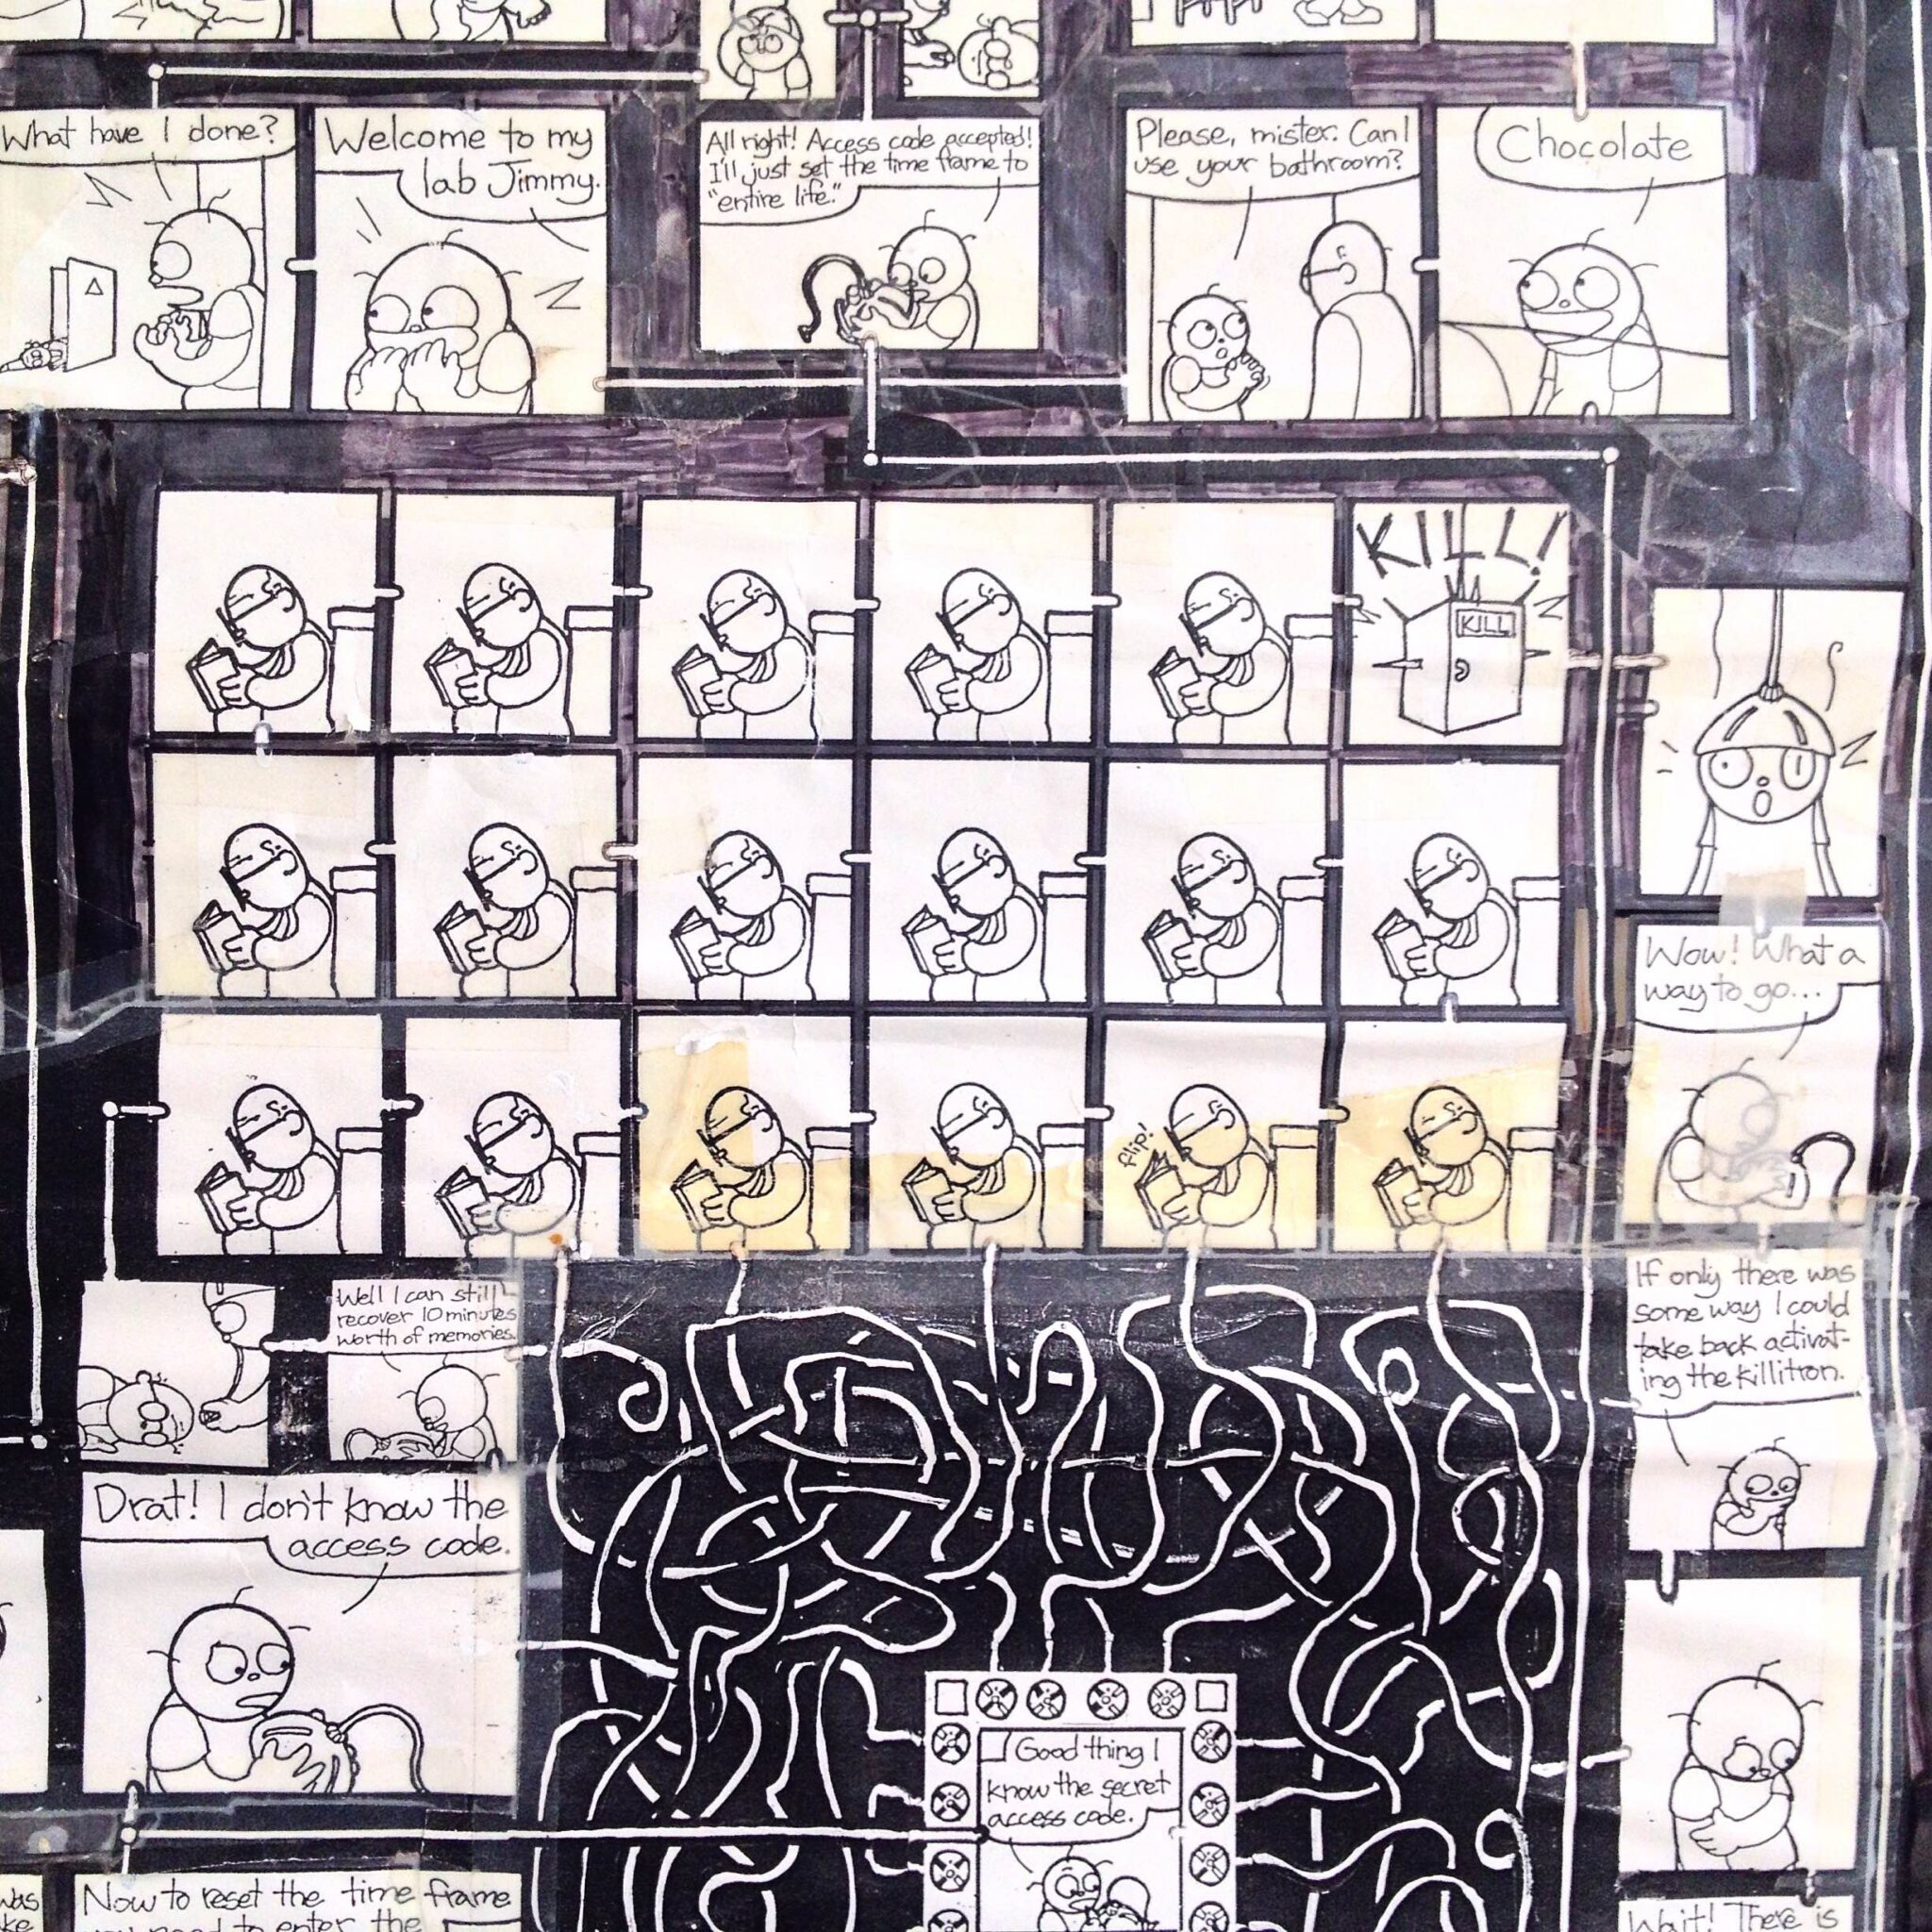 What have I done?
Welcome to my
lab Jimmy.
All right! Access code accepted!
I'll just set the time frame to
"entire life."
Please, mister. Can I
use your bathroom?
Chocolate
KILL!
KILL
Wow! What a
way to go...
flip!
If only there was
some way I could
take back activat-
ing the Killitron.
Well I can still
recover 10 minutes
worth of memories.
Drat! I don't know the
access code.
Good thing I
know the secret
access code.
was
ke
Now to reset the time frame
you need to enter the
Wait! There is